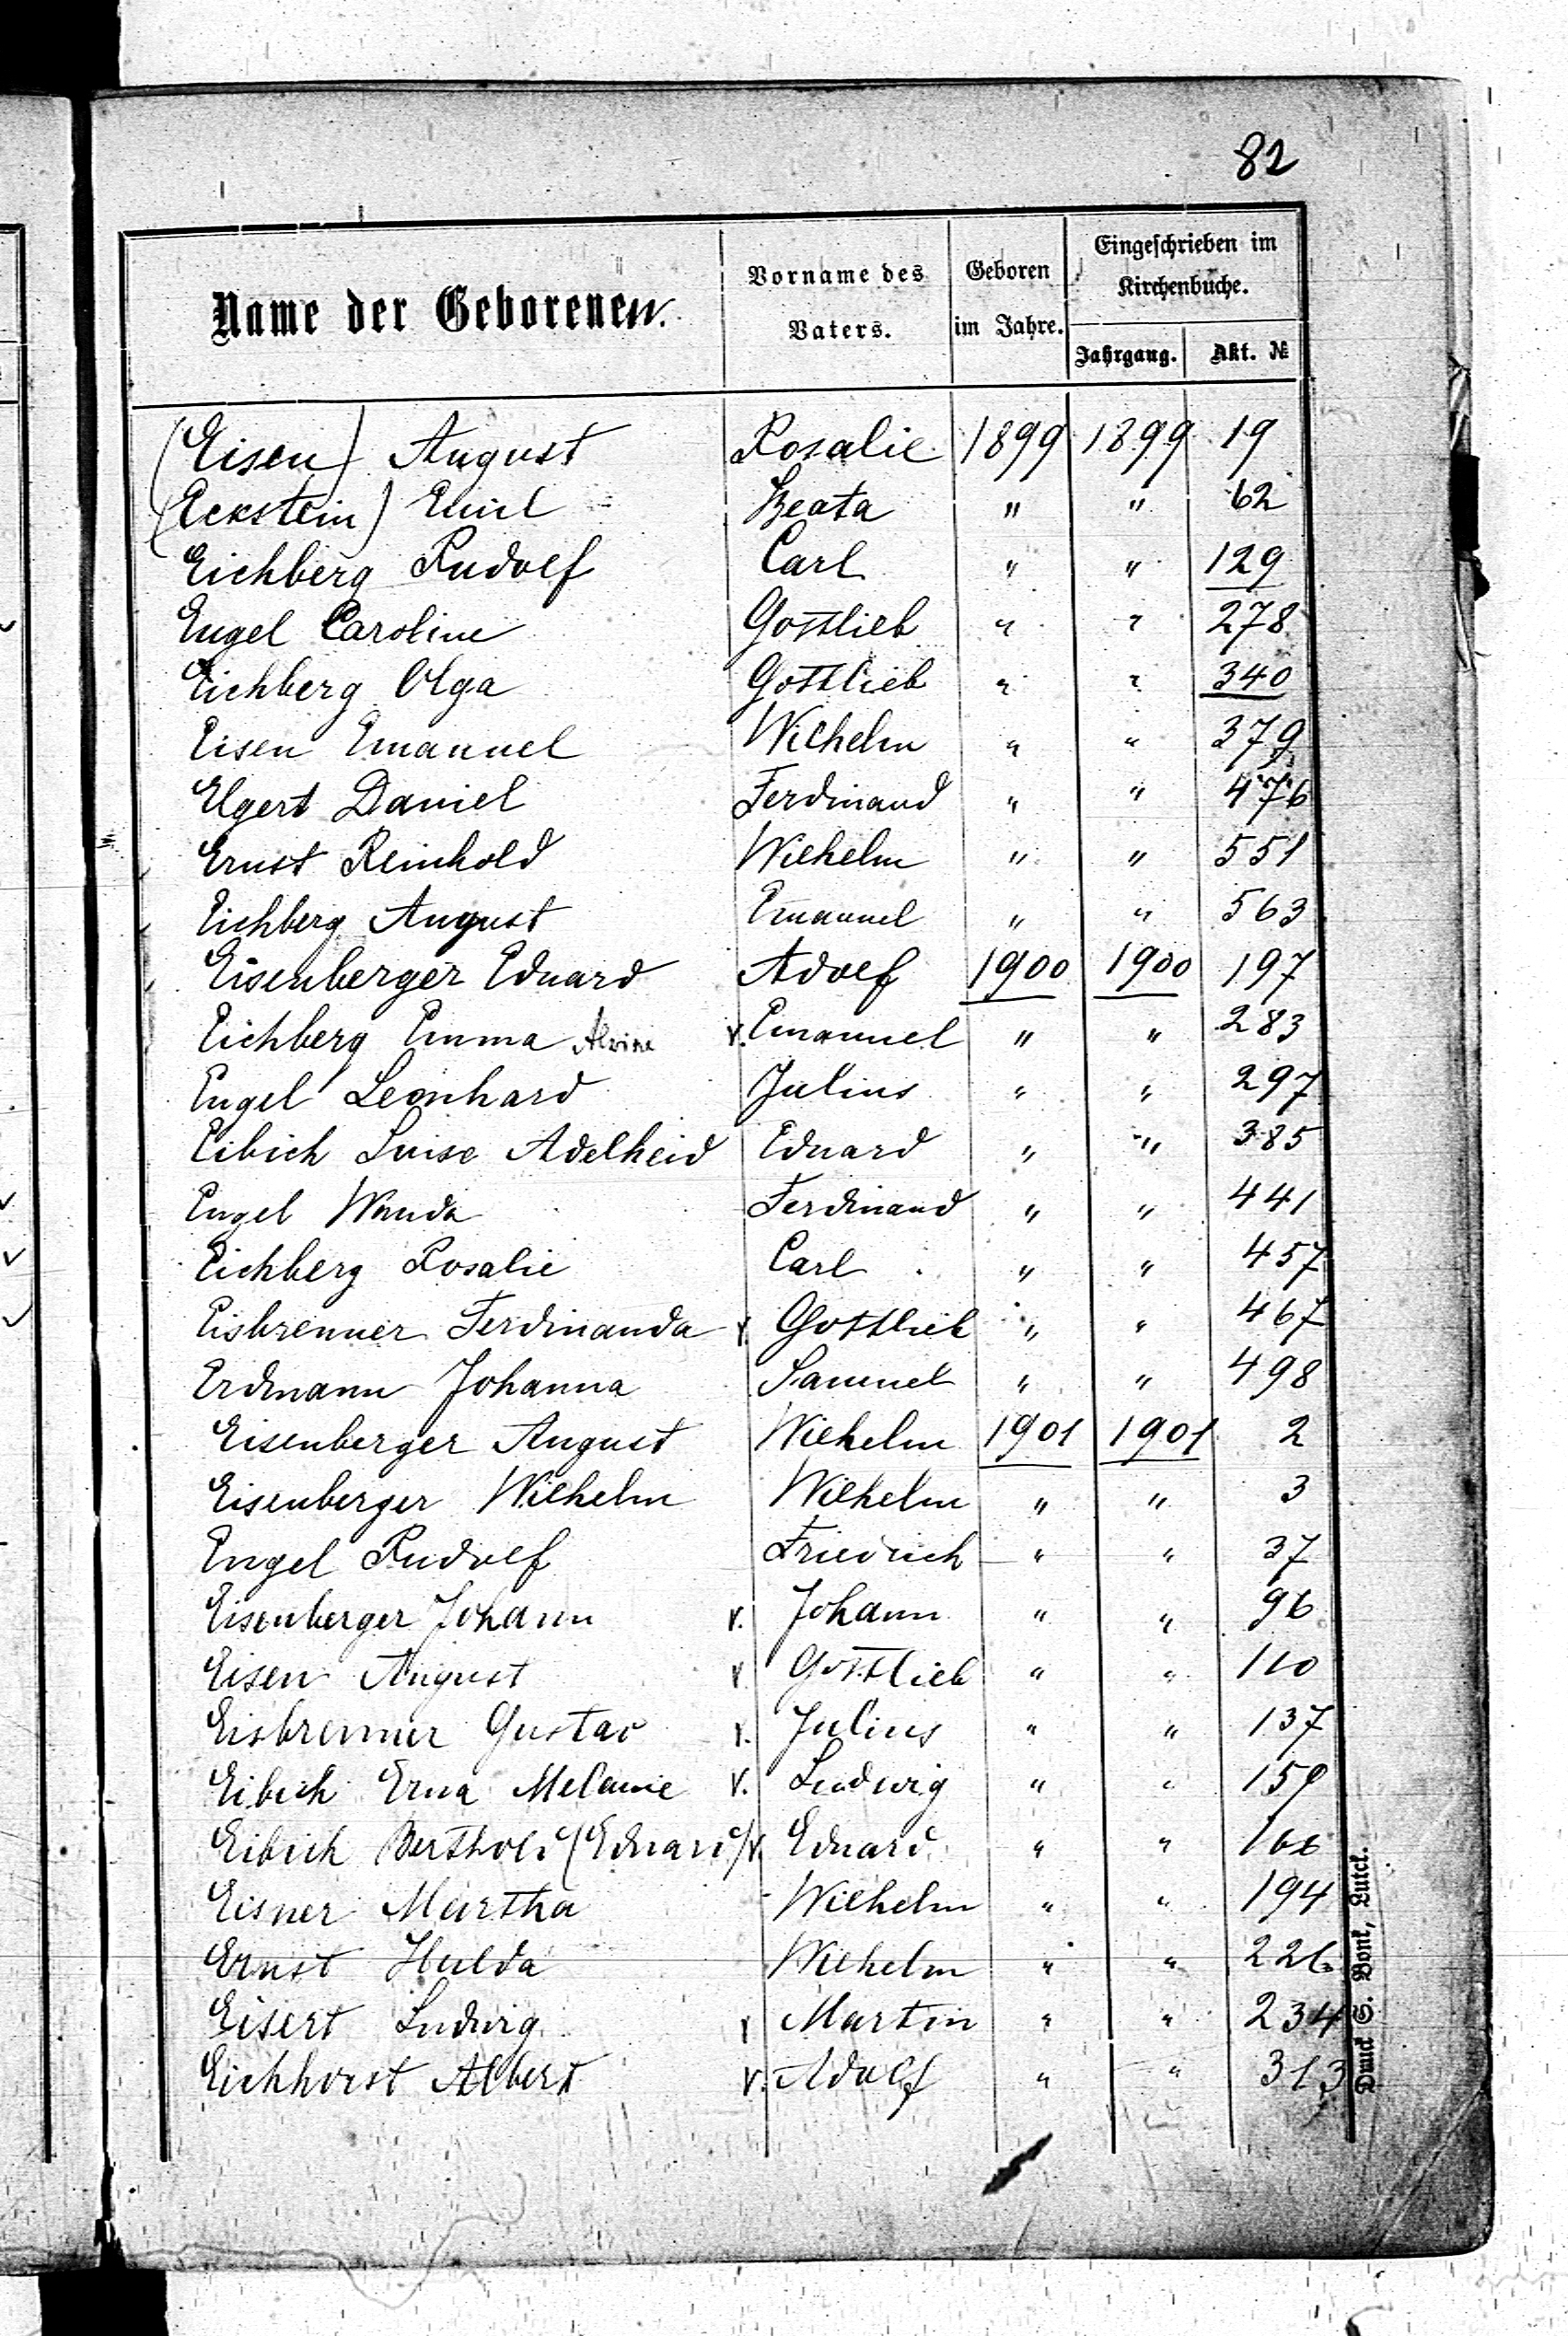 82
Name der Geborenen. Vorname des Vaters. Geboren im Jahre. Eingeschrieben im Kirchenbuche.
Jahrgang. Akt. №
(Eisen) August Rosalie 1899 1899 19
(Eckstein) Emil Beata " " 62
Eichberg Rudolf Carl " " 129
Engel Caroline Gottlieb " " 278
Eichberg Olga Gottlieb " " 340
Eisen Emanuel Wilhelm " " 379
Elgert Daniel Ferdinand " " 476
Ernst Reinhold Wilhelm " " 551
Eichberg August Emanuel " " 563
Eisenberger Eduard Adolf 1900 1900 197
Eichberg Emma Alvine v. Emanuel " " 283
Engel Leonhard Julius " " 297
Eibich Luise Adelheid Eduard " " 385
Engel Wanda Ferdinand " " 441
Eichberg Rosalie Carl " " 457
Eisbrenner Ferdinanda v. Gottlieb " " 467
Erdmann Johanna Samuel " " 498
Eisenberger August Wilhelm 1901 1901 2
Eisenberger Wilhelm Wilhelm " " 3
Engel Rudolf Friedrich " " 37
Eisenberger Johann v. Johann " " 96
Eisen August v. Gottlieb " " 110
Eisbrenner Gustav v. Julius " " 137
Eibich Erna Melanie v. Ludwig " "
Eibich Berthold (Eduard) v. Eduard " "
Eisner Martha Wilhelm " " 194
Ernst Hulda Wilhelm " " 226
Eisert Ludwig v Martin " " 234
Eichhorst Albert v. Adolf " " 313
Druck G. Bonk, Lutck.